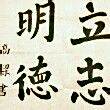 立志
明德